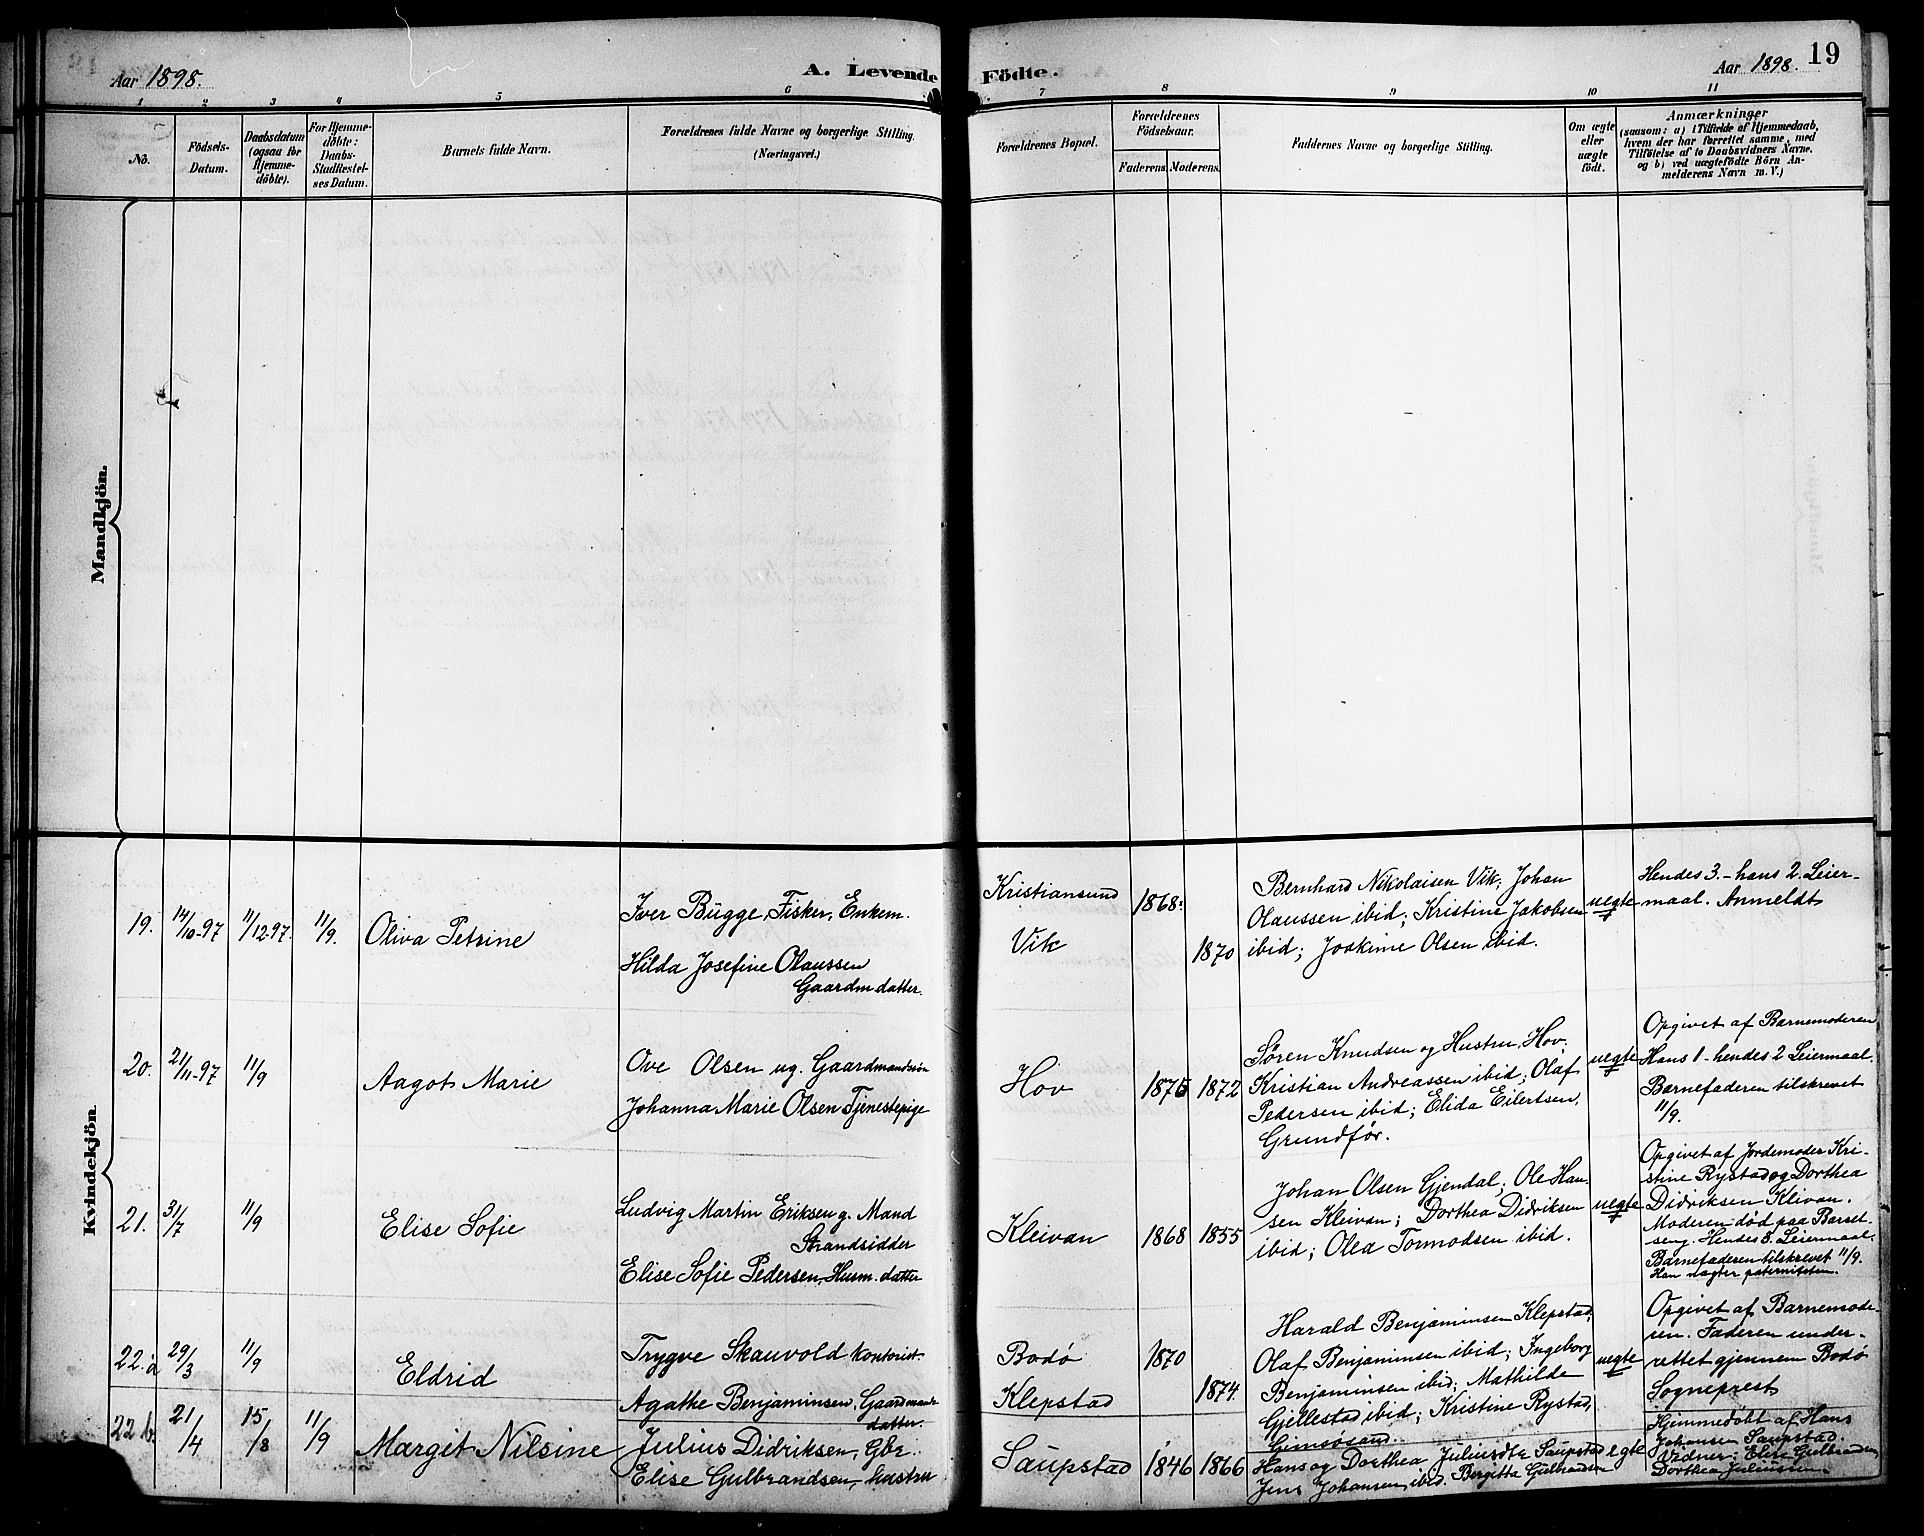 Aar 1898.
A. Levende
Födte.
Aar 1898.
19
1 2 3 4 5 6 7 8 9 10 11
No.
Födsels-
Datum.
Daabsdatum
(ogsaa for
Hjemme-
döbte).
For Hjemme-
döbte:
Daabs-
Stadfæstel-
ses Datum.
Barnets fulde Navn.
Forældrenes fulde Navne og borgerlige Stilling.
(Næringsvei.)
Forældrenes Bopæl.
Forældrenes
Födselsaar.
Faderens. Moderens.
Faddernes Navne og borgerlige Stilling.
Om ægte
eller
uægte
födt.
Anmærkninger
(saasom: a) i Tilfælde af Hjemmedaab,
hvem der har forrettet samme, med
Tilföielse af to Daabsvidners Navne.
og b) ved uægtefödte Börn An-
melderens Navn m. V.)
Mandkjön.
Kvindekjön.
19.
14/10-97
11/12-97.
11/9.
Oliva Petrine
Iver Bugge, Fisker, Enkem.
Hilda Josefine Olaussen
Gaardm datter.
Kristiansund
Vik
1868.
1870
Bernhard Nikolaisen Vik; Johan
Olaussen ibid; Kristine Jakobsen
ibid; Joakime Olsen ibid.
uegte
Hendes 3.- hans 2. Leier-
maal. Anmeldt
20.
21/11-97
11/9
Aagot Marie
Ove Olsen ug. Gaardmandssøn
Johanna Marie Olsen Tjenestepige
Hov
1875
1872
Søren Knudsen og Hustru, Hov;
Kristian Andreassen ibid; Olaf
Pedersen ibid; Elida Eilertsen,
Grundfør.
uegte
Opgivet af Barnemoderen
Hans 1 - hendes 2 Leiermaal.
Barnefaderen tilskrevet
11/9.
21.
31/7
11/9
Elise Sofie
Ludvig Martin Eriksen g. Mand
Strandsidder
Elise Sofie Pedersen, Husm. datter
Kleivan
1868
1855
Johan Olsen Gjendal; Ole Han-
sen Kleivan; Dorthea Didriksen
ibid; Olea Tormodsen ibid.
uegte
Opgivet af Jordemoder Kri-
stine Rystad og Dorthea
Didriksen Klivan.
Moderen død paa Barsel-
seng. Hendes 8. Leiermaal.
Barnefaderen tilskrevet 11/9.
Han nægter paterniteten.
22.a
29/3
11/9
Eldrid
Trygve Skauvold Kontorist.
Agathe Benjaminsen, Gaardmands
datter.
Bodø
Klepstad
1870
1874
Harald Benjaminsen Klepstad,
Olaf Benjaminsen ibid; Ingeborg
Benjaminsen ibid; Mathilde
Gjellestad ibid; Kristine Rystad,
Gimsøsand.
uegte
Opgivet af Barnemode-
ren. Faderen under-
rettet gjennem Bodø
Sogneprest
22 b
21/4
15/8
11/9
Margit Nilsine
Julius Didriksen, Gbr.
Elise Gulbrandsen, hustru
Saupstad
1846
1866
Hans og Dorthea Juliusdtr Saupstad
Jens Johansen, ibid. Bergitta Gulbrandsen
egte
Hjemmedøbt af Hans
Johansen Saupstad.
Vidner: Elise Gulbrandsen,
Dorthea Juliussen.